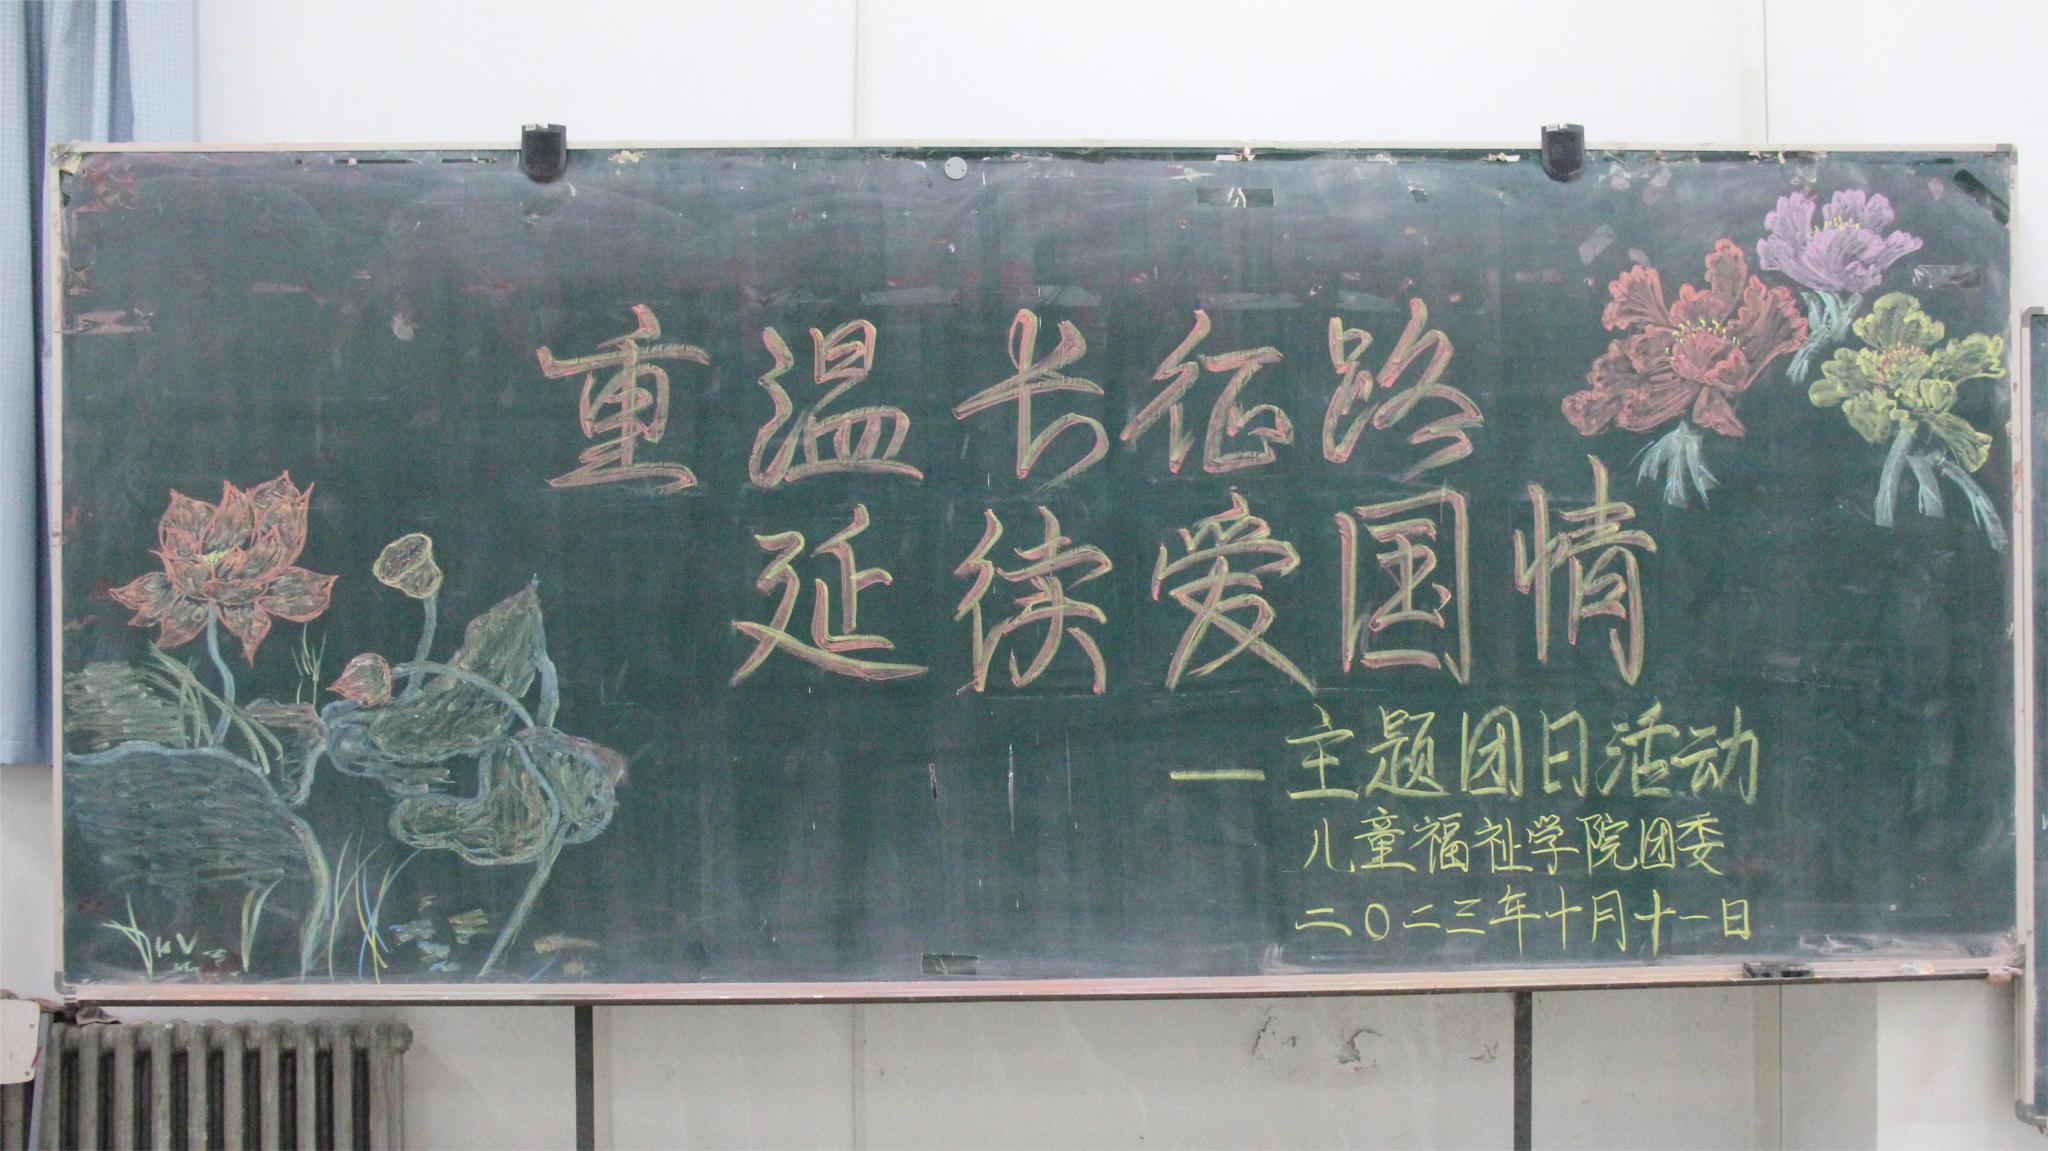 重温长征路
延续爱国情
—主题团日活动
儿童福祉学院团委
二〇二三年十月十一日